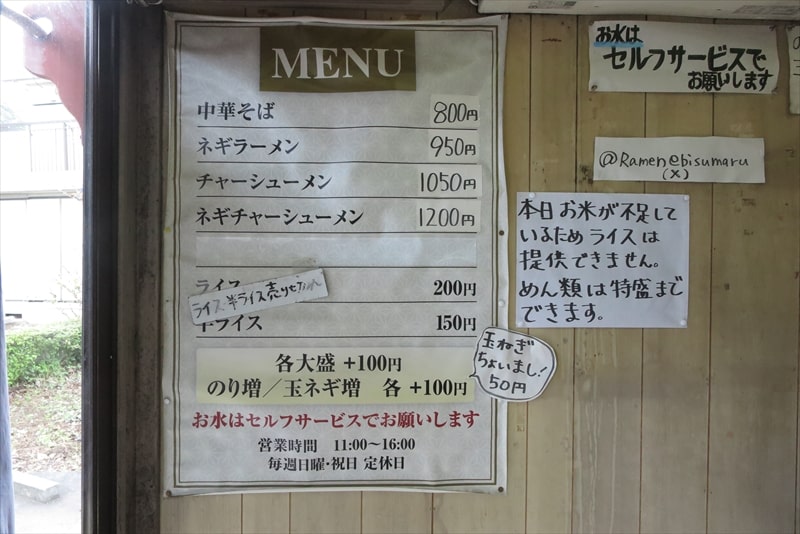 MENU
中華そば 800円
ネギラーメン 950円
チャーシューメン 1050円
ネギチャーシューメン 1200円
ライス 200円
ライス 半ライス売り切れ
半ライス 150円
各大盛 +100円
のり増/玉ネギ増 各 +100円
玉ねぎ
ちょいまし!
50円
お水はセルフサービスでお願いします
営業時間 11:00〜16:00
毎週日曜・祝日 定休日
お水は
セルフサービスで
お願いします
@Ramenebisumaru
(X)
本日お米が不足して
いるためライスは
提供できません。
めん類は特盛まで
できます。